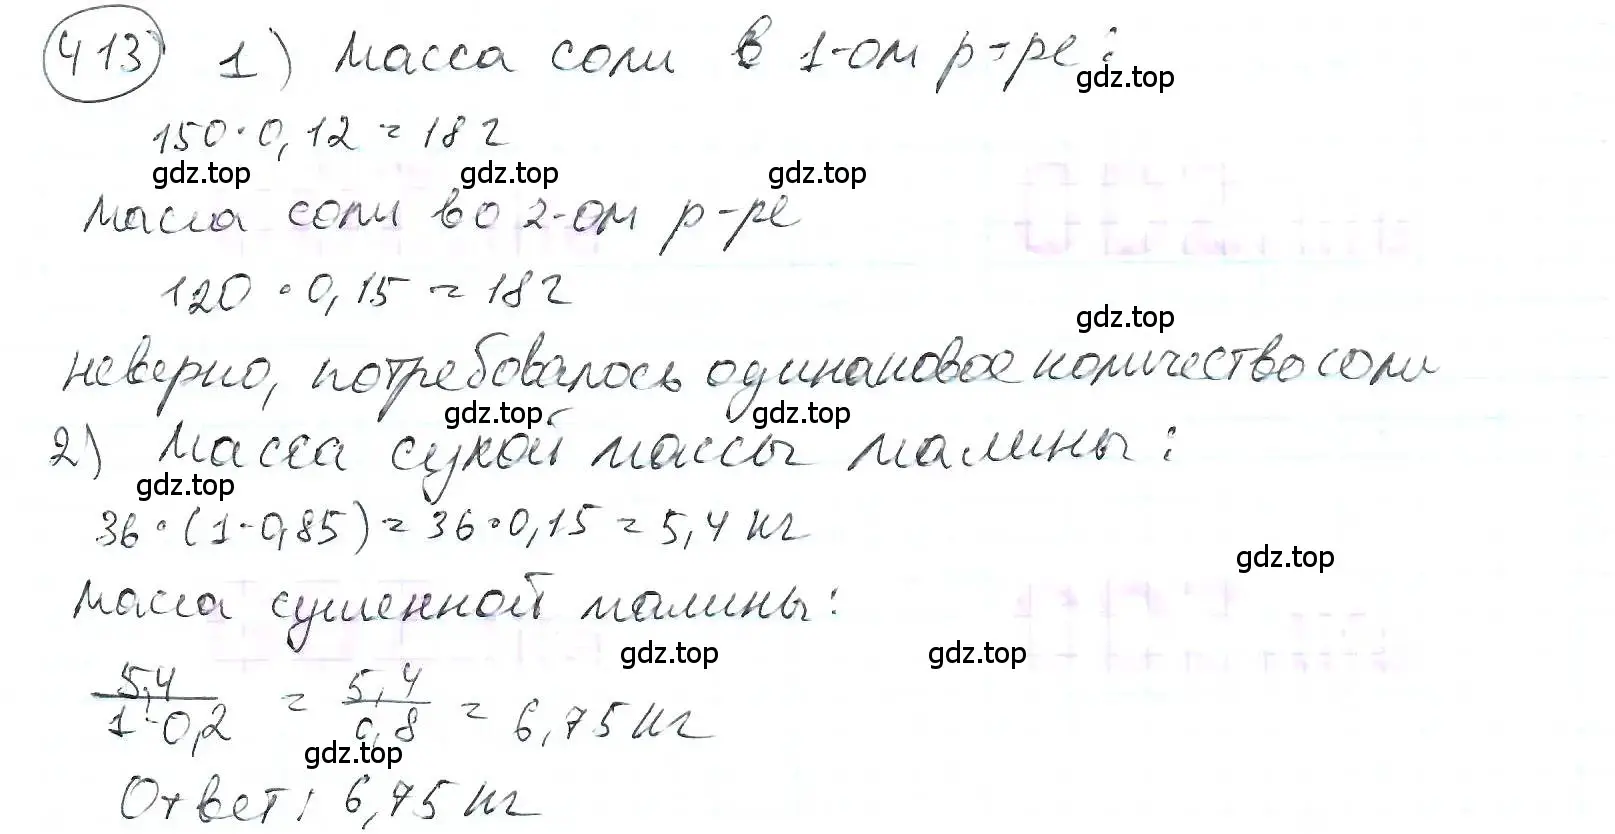 413 1) Масса соли в 1-ом р-ре:
gdz.top
150·0,12 = 18 г
gdz.top gdz.top gdz.top
Масса соли во 2-ом р-ре
120 · 0,15 = 18 г
gdz.top
неверно, потребовалось одинаковое количество соли
gdz.top gdz.top
2) Масса сухой массы малины:
gdz.top
36·(1-0,85) = 36·0,15 = 5,4 кг
gdz.top
Масса сушенной малины:
gdz.top gdz.top
5,4 / 1-0,2 = 5,4 / 0,8 = 6,75 кг
gdz.top
Ответ: 6,75 кг